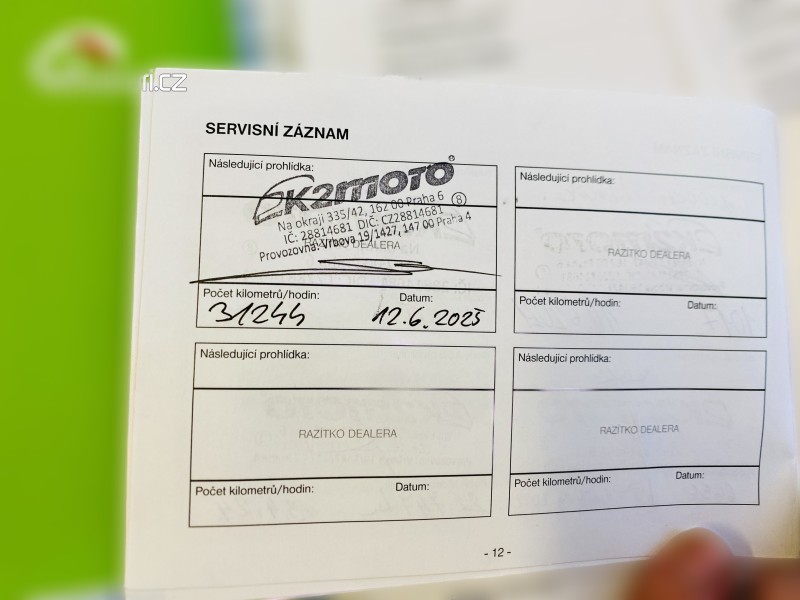 ri.cz
SERVISNÍ ZÁZNAM
Následující prohlídka:
k2moto®
Na okraji 335/42, 162 00 Praha 6
IČ: 28814681 DIČ: CZ28814681 8
Provozovna: Vrbova 19/1427, 147 00 Praha 4
RAZÍTKO DEALERA
Počet kilometrů/hodin: Datum:
31244 12.6.2025
Následující prohlídka:
RAZÍTKO DEALERA
Počet kilometrů/hodin: Datum:
Následující prohlídka:
RAZÍTKO DEALERA
Počet kilometrů/hodin: Datum:
Následující prohlídka:
RAZÍTKO DEALERA
Počet kilometrů/hodin: Datum:
- 12 -